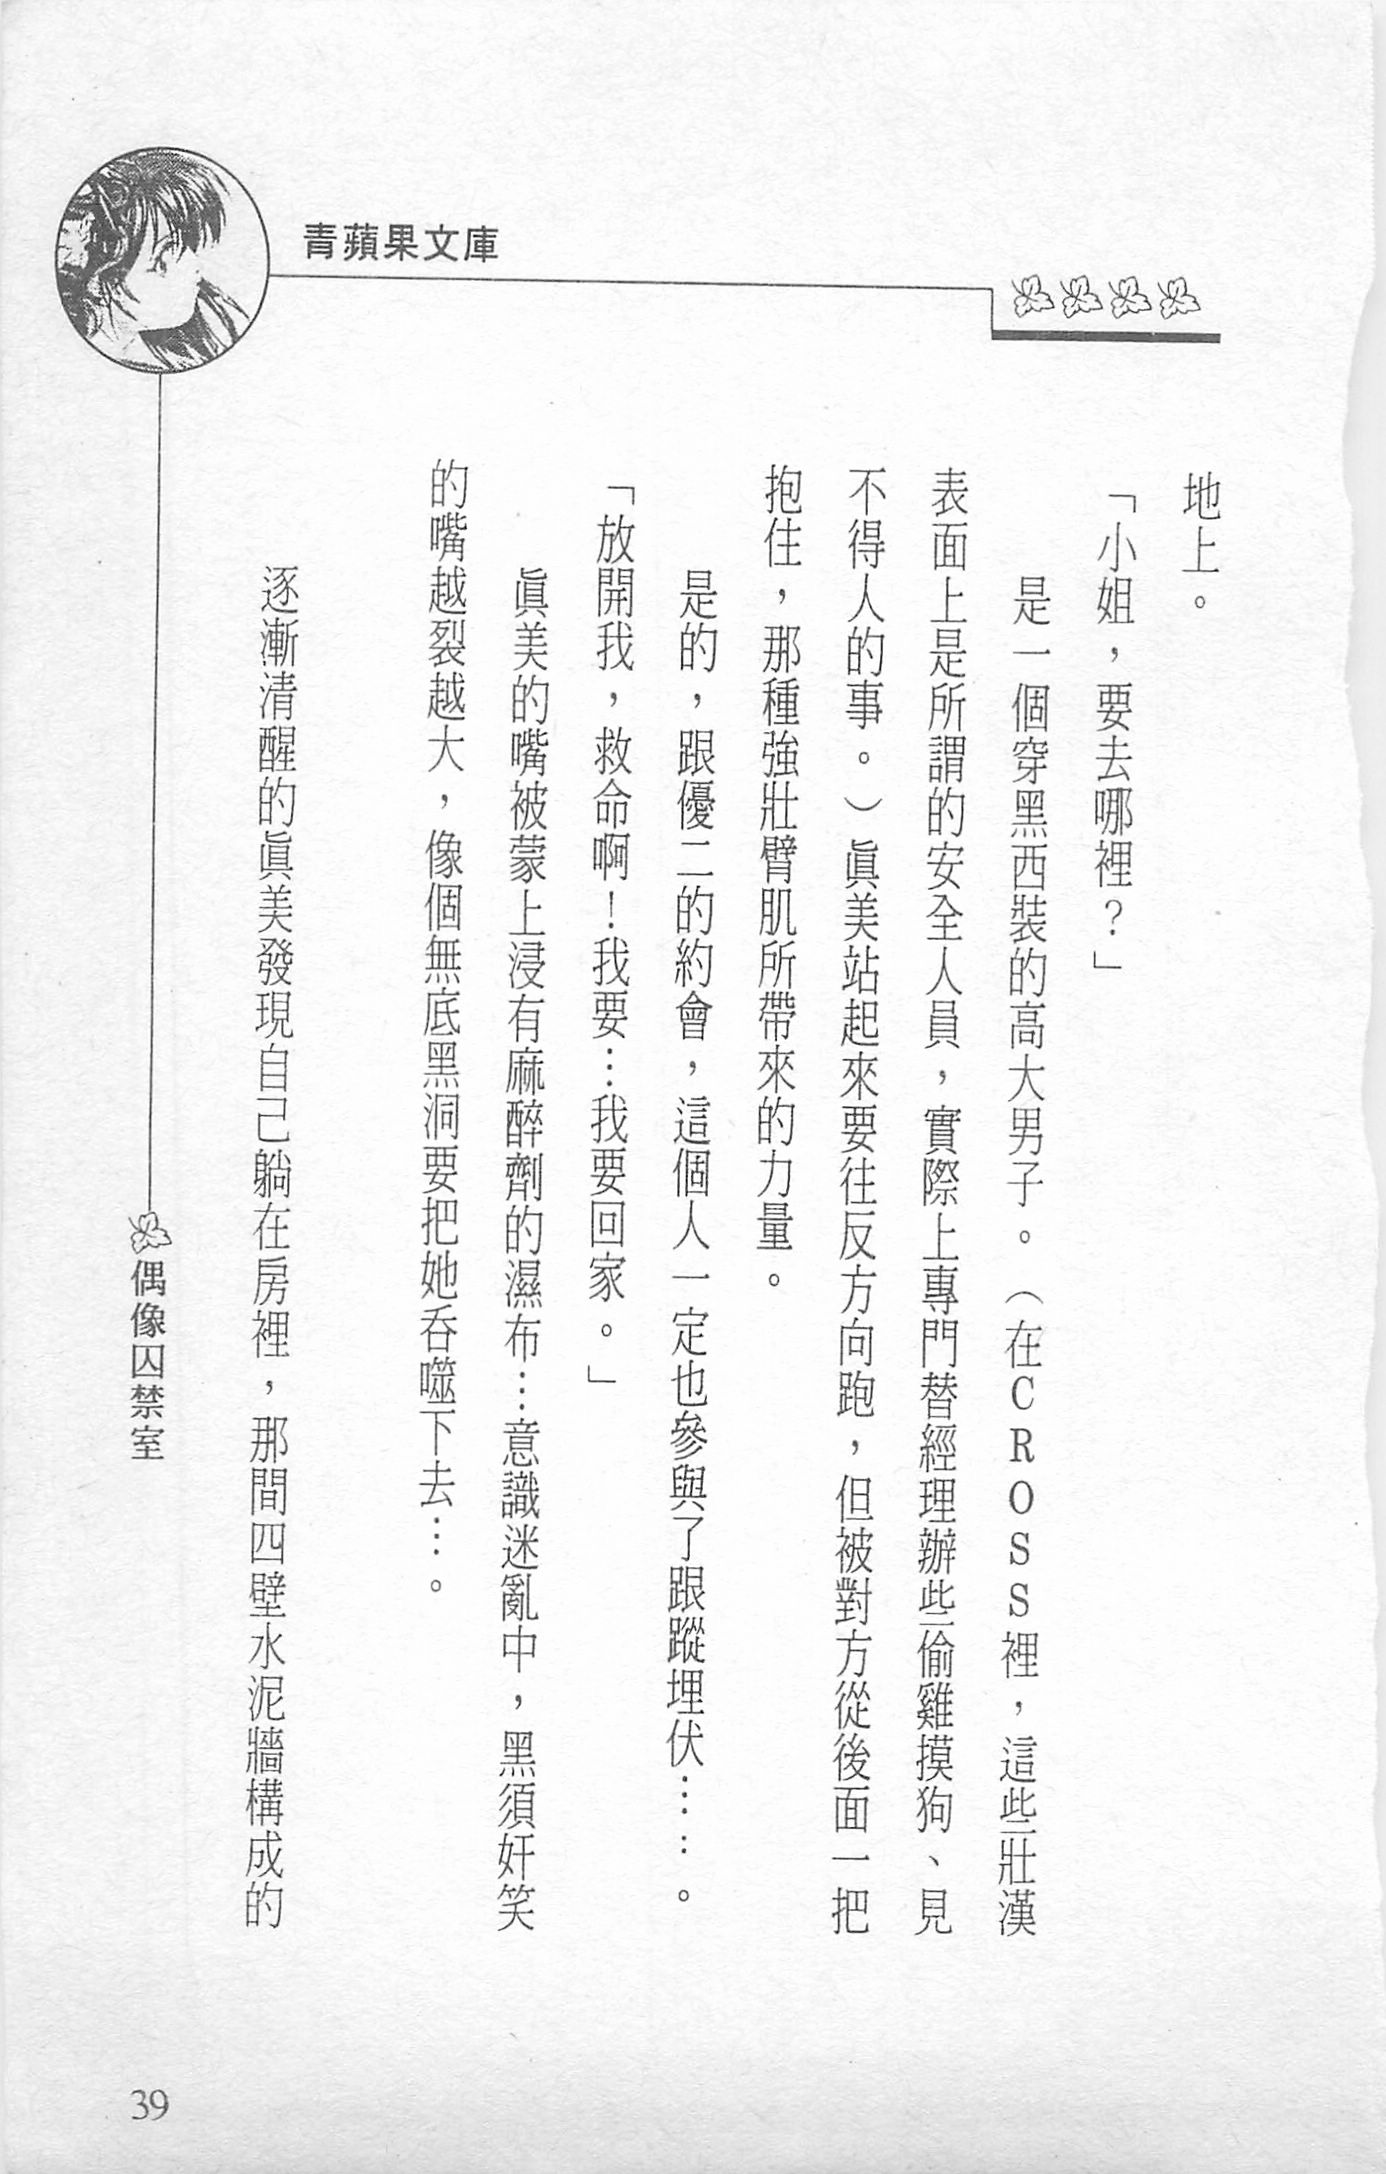 青蘋果文庫
地上。
「小姐，要去哪裡？」
是一個穿黑西裝的高大男子。（在CROSS裡，這些壯漢
表面上是所謂的安全人員，實際上專門替經理辦些偷雞摸狗、見
不得人的事。）眞美站起來要往反方向跑，但被對方從後面一把
抱住，那種強壯臂肌所帶來的力量。
是的，跟優二的約會，這個人一定也參與了跟蹤埋伏……。
「放開我，救命啊！我要…我要回家。」
眞美的嘴被蒙上浸有麻醉劑的濕布…意識迷亂中，黑須奸笑
的嘴越裂越大，像個無底黑洞要把她吞噬下去…。
逐漸清醒的眞美發現自己躺在房裡，那間四壁水泥牆構成的
偶像囚禁室
39